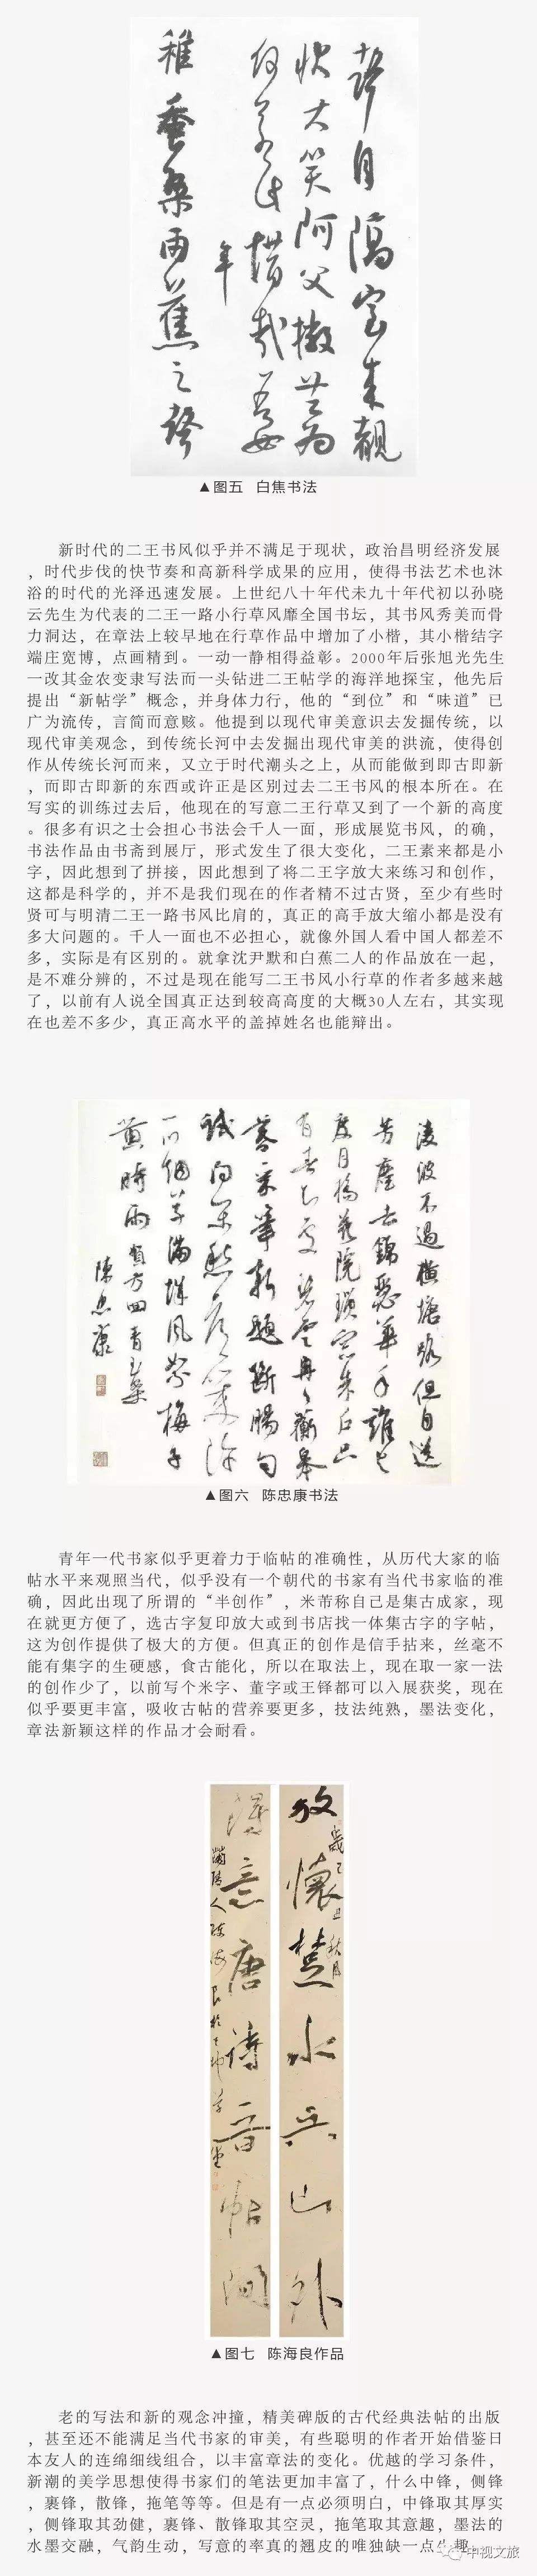 ▲图五 白焦书法
新时代的二王书风似乎并不满足于现状，政治昌明经济发展
，时代步伐的快节奏和高新科学成果的应用，使得书法艺术也沐
浴的时代的光泽迅速发展。上世纪八十年代未九十年代初以孙晓
云先生为代表的二王一路小行草风靡全国书坛，其书风秀美而骨
力洞达，在章法上较早地在行草作品中增加了小楷，其小楷结字
端庄宽博，点画精到。一动一静相得益彰。2000年后张旭光先生
一改其金农变隶写法而一头钻进二王帖学的海洋地探宝，他先后
提出“新帖学”概念，并身体力行，他的“到位”和“味道”已
广为流传，言简而意赅。他提到以现代审美意识去发掘传统，以
现代审美观念，到传统长河中去发掘出现代审美的洪流，使得创
作从传统长河而来，又立于时代潮头之上，从而能做到即古即新
，而即古即新的东西或许正是区别过去二王书风的根本所在。在
写实的训练过去后，他现在的写意二王行草又到了一个新的高度
。很多有识之士会担心书法会千人一面，形成展览书风，的确，
书法作品由书斋到展厅，形式发生了很大变化，二王素来都是小
字，因此想到了拼接，因此想到了将二王字放大来练习和创作，
这都是科学的，并不是我们现在的作者精不过古贤，至少有些时
贤可与明清二王一路书风比肩的，真正的高手放大缩小都是没有
多大问题的。千人一面也不必担心，就像外国人看中国人都差不
多，实际是有区别的。就拿沈尹默和白蕉二人的作品放在一起，
是不难分辨的，不过是现在能写二王书风小行草的作者多越来越
了，以前有人说全国真正达到较高高度的大概30人左右，其实现
在也差不多少，真正高水平的盖掉姓名也能辩出。
凌波不过横塘路但目送
芳尘去锦瑟华年谁与
度月桥花院琐窗朱户只
有春知处碧云冉冉蘅皋
暮彩笔新题断肠句
试问闲愁都几许
一川烟草满城风絮梅子
黄时雨 贺方回青玉案
陈忠康
▲图六 陈忠康书法
青年一代书家似乎更着力于临帖的准确性，从历代大家的临
帖水平来观照当代，似乎没有一个朝代的书家有当代书家临的准
确，因此出现了所谓的“半创作”，米芾称自己是集古成家，现
在就更方便了，选古字复印放大或到书店找一体集古字的字帖，
这为创作提供了极大的方便。但真正的创作是信手拈来，丝毫不
能有集字的生硬感，食古能化，所以在取法上，现在取一家一法
的创作少了，以前写个米字、董字或王铎都可以入展获奖，现在
似乎要更丰富，吸收古帖的营养要更多，技法纯熟，墨法变化，
章法新颖这样的作品才会耐看。
放怀楚水吴山外
得意唐诗晋帖间
▲图七 陈海良作品
老的写法和新的观念冲撞，精美碑版的古代经典法帖的出版
，甚至还不能满足当代书家的审美，有些聪明的作者开始借鉴日
本友人的连绵细线组合，以丰富章法的变化。优越的学习条件，
新潮的美学思想使得书家们的笔法更加丰富了，什么中锋，侧锋
，裹锋，散锋，拖笔等等。但是有一点必须明白，中锋取其厚实
，侧锋取其劲健，裹锋、散锋取其空灵，拖笔取其意趣，墨法的
水墨交融，气韵生动，写意的率真的翘皮的唯独缺一点生趣。
中视文旅